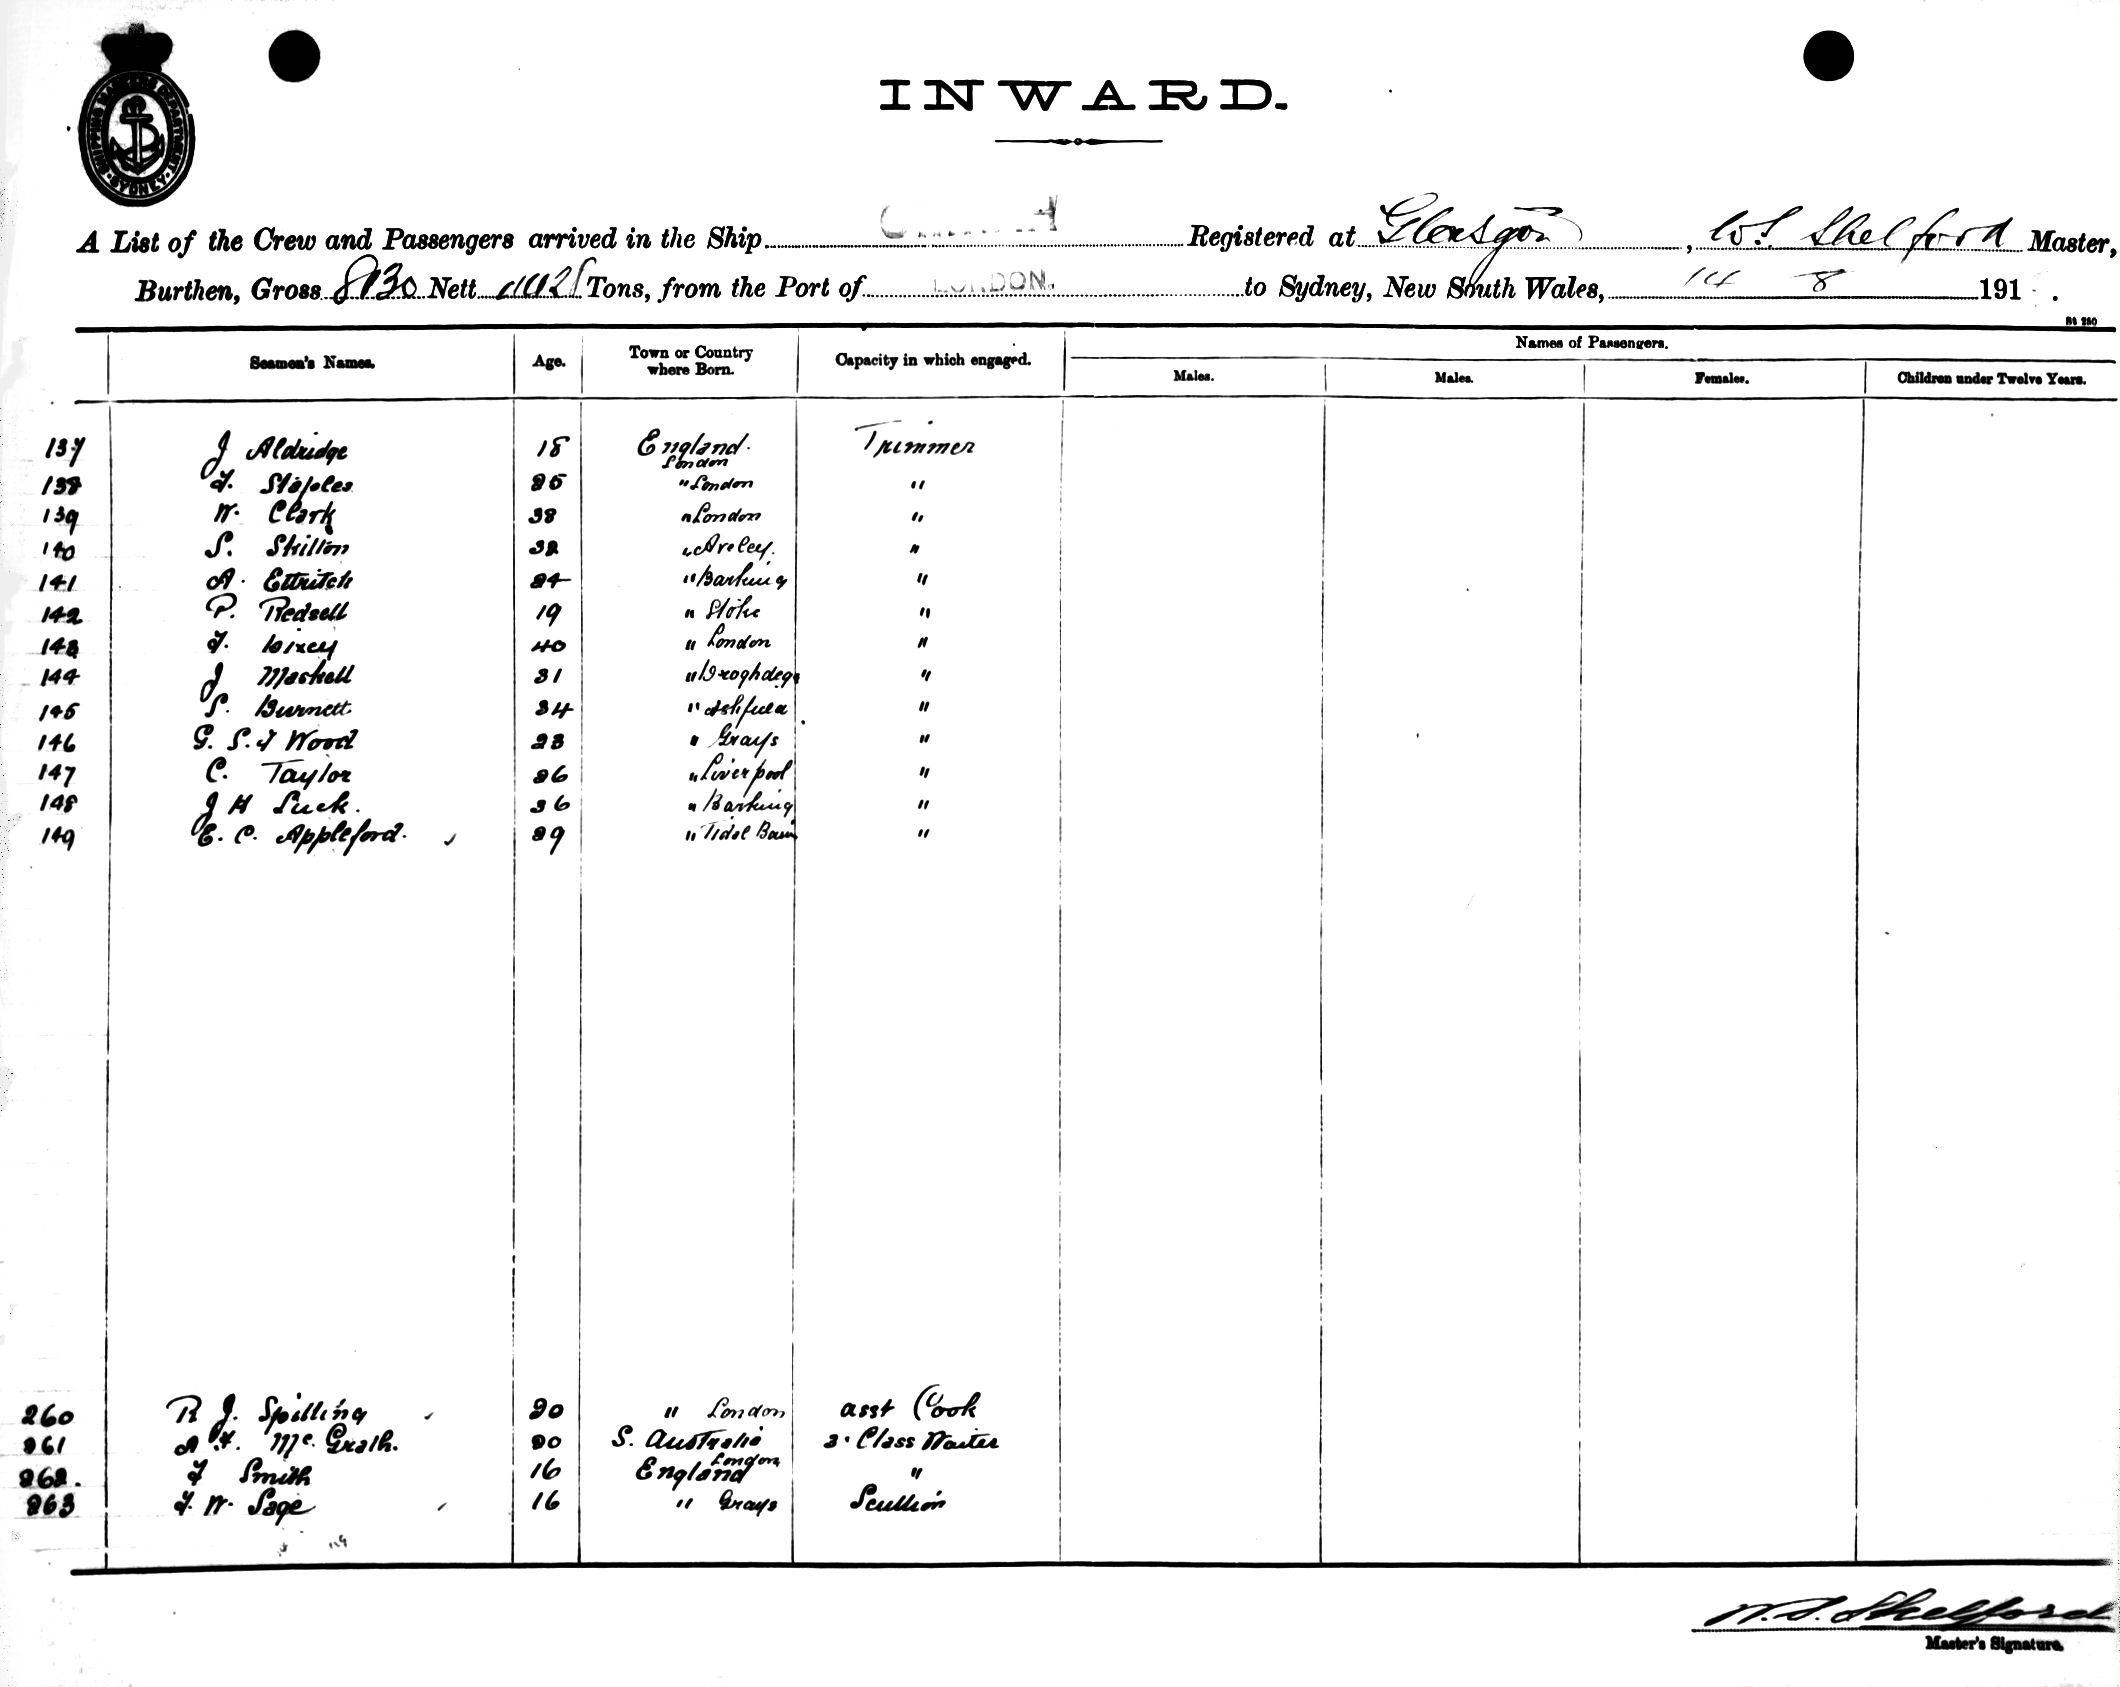 SHIPPING MASTER'S DEPARTMENT SYDNEY
INWARD.
A List of the Crew and Passengers arrived in the Ship Registered at Glasgow, W.S. Shelford Master,
Burthen, Gross 8130 Nett Tons, from the Port of LONDON. to Sydney, New South Wales, 14 8 191 .
St 280
Seamen's Names. Age. Town or Country where Born. Capacity in which engaged. Names of Passengers.
Males. Males. Females. Children under Twelve Years.
137 J Aldridge 18 England. London Trimmer
138 F. Staples 25 " London "
139 W. Clark 38 " London "
140 S. Skilton 32 " Aveley. "
141 A. Ettritch 24 " Barking "
142 P. Redsell 19 " Stoke "
143 F. Dixey 40 " London "
144 J Maskell 31 " "
145 S. Burnett 34 " "
146 G. S. F Wood 23 " Grays "
147 C. Taylor 26 " Liverpool "
148 J H Luck. 36 " Barking "
149 E. C. Appleford. 29 " Tidal Basin "
260 R J. Spilling 20 " London asst Cook
261 A F. Mc. Grath. 20 S. Australia 3. Class Waiter
262. F Smith 16 England London "
263 F. W. Sage 16 " Grays Scullion
W.S. Shelford
Master's Signature.